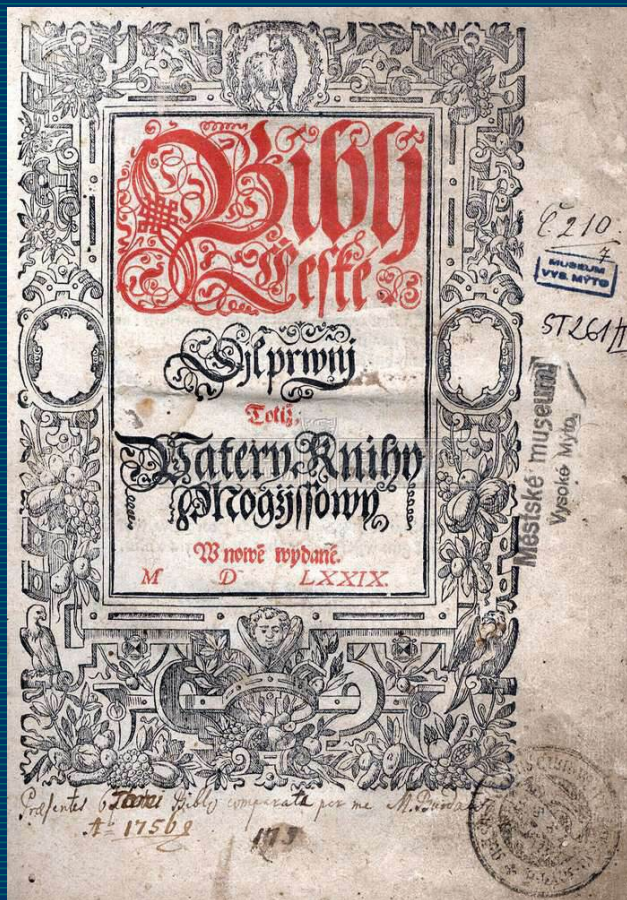 Biblj
České
Djl prwnj
Totiž,
Patery Knihy
Mogžjssowy
W nowě wydané.
M D LXXIX.
Č 210
7
MUSEUM
VYS. MÝTO
ST261/I
Městské museum
Vysoké Mýto
Præsentes 6 Tomi Biblj comparata per me M.
Aº 1756
173